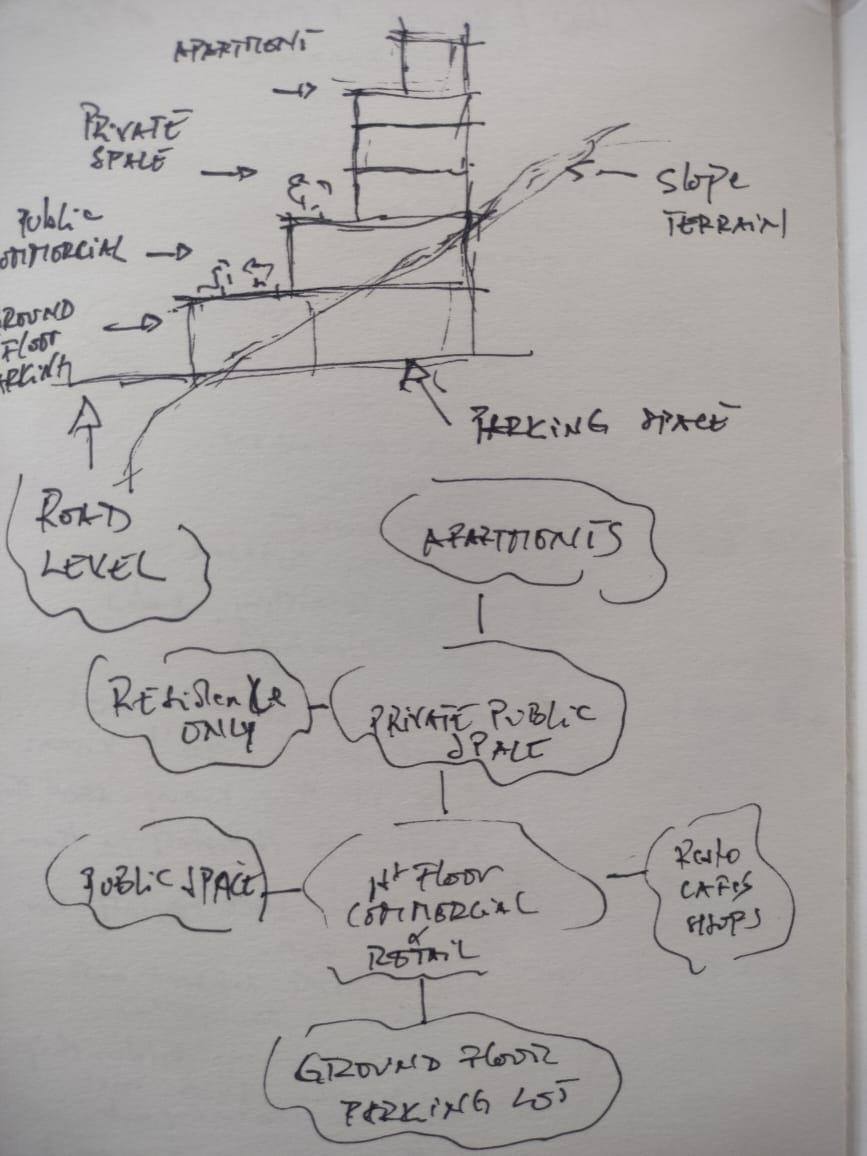 APARTMENT
PRIVATE
SPACE
PUBLIC
COMMERCIAL
GROUND
FLOOR
PARKING
SLOPE
TERRAIN
PARKING SPACE
ROAD
LEVEL
APARTMENTS
RESIDENCE
ONLY
PRIVATE PUBLIC
SPACE
PUBLIC SPACE
1st FLOOR
COMMERCIAL
&
RETAIL
Resto
CAFES
SHOPS
GROUND FLOOR
PARKING LOT